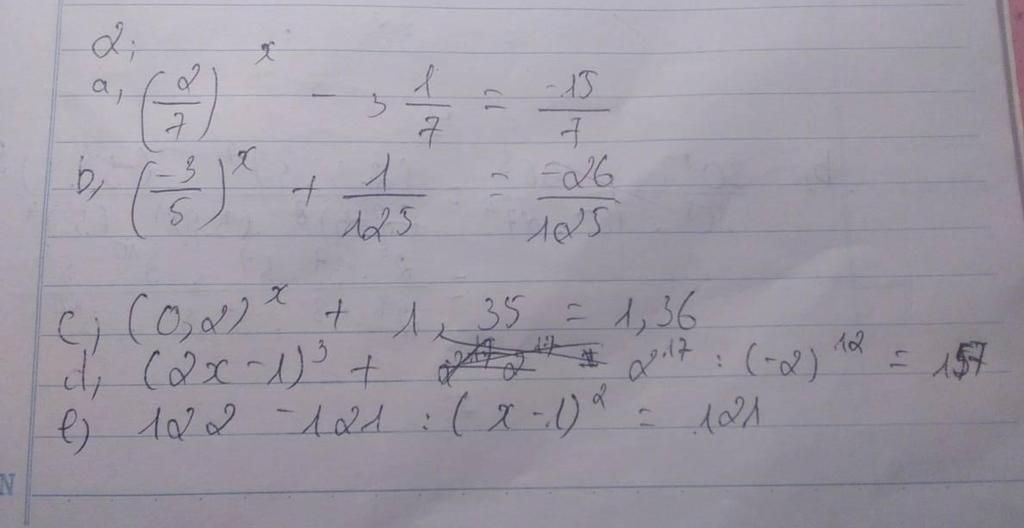 2;
a, (2/7)^x - 3 1/7 = -15/7
b, (-3/5)^x + 1/125 = -26/125
c; (0,2)^x + 1,35 = 1,36
d, (2x - 1)^3 + 2^17 : (-2)^12 = 157
e) 122 - 121 : (x - 1)^2 = 121
N